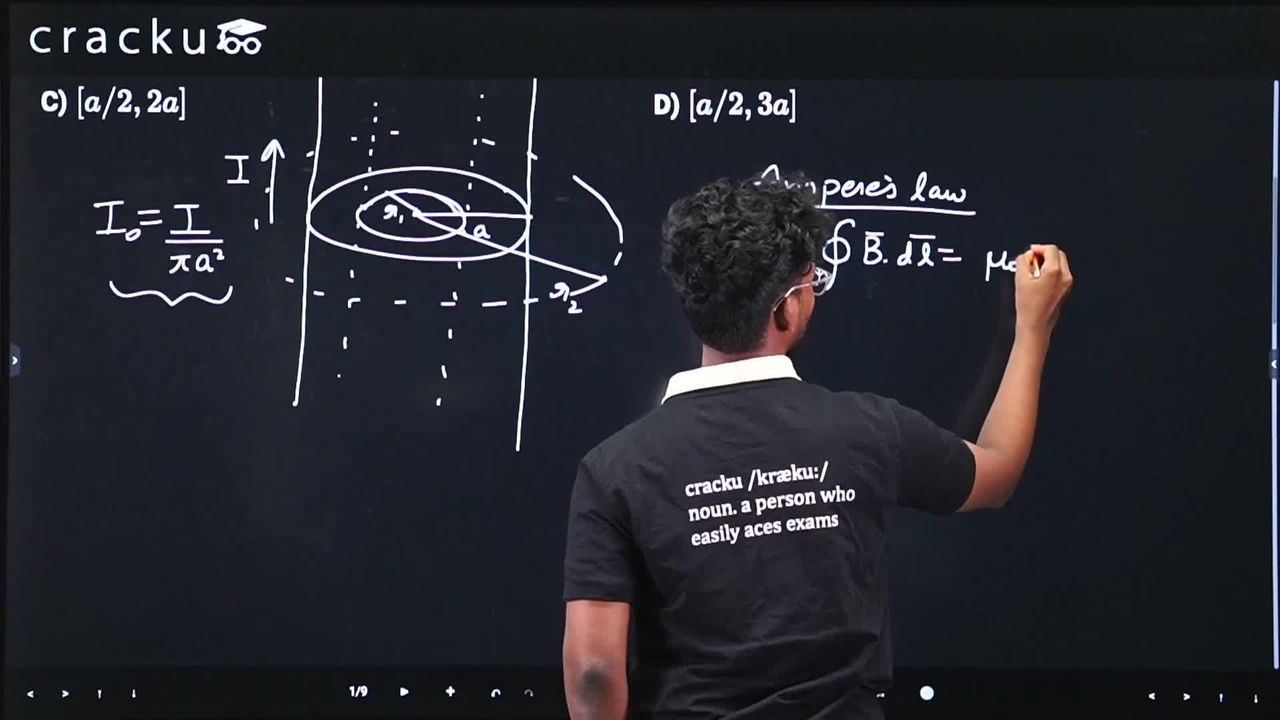 cracku
C) [a/2, 2a]
D) [a/2, 3a]
I
I₀ = I/πa²
r₁
a
r₂
law
∮ B̅. dl̅ =
cracku /kræku:/
noun. a person who
easily aces exams
1/9